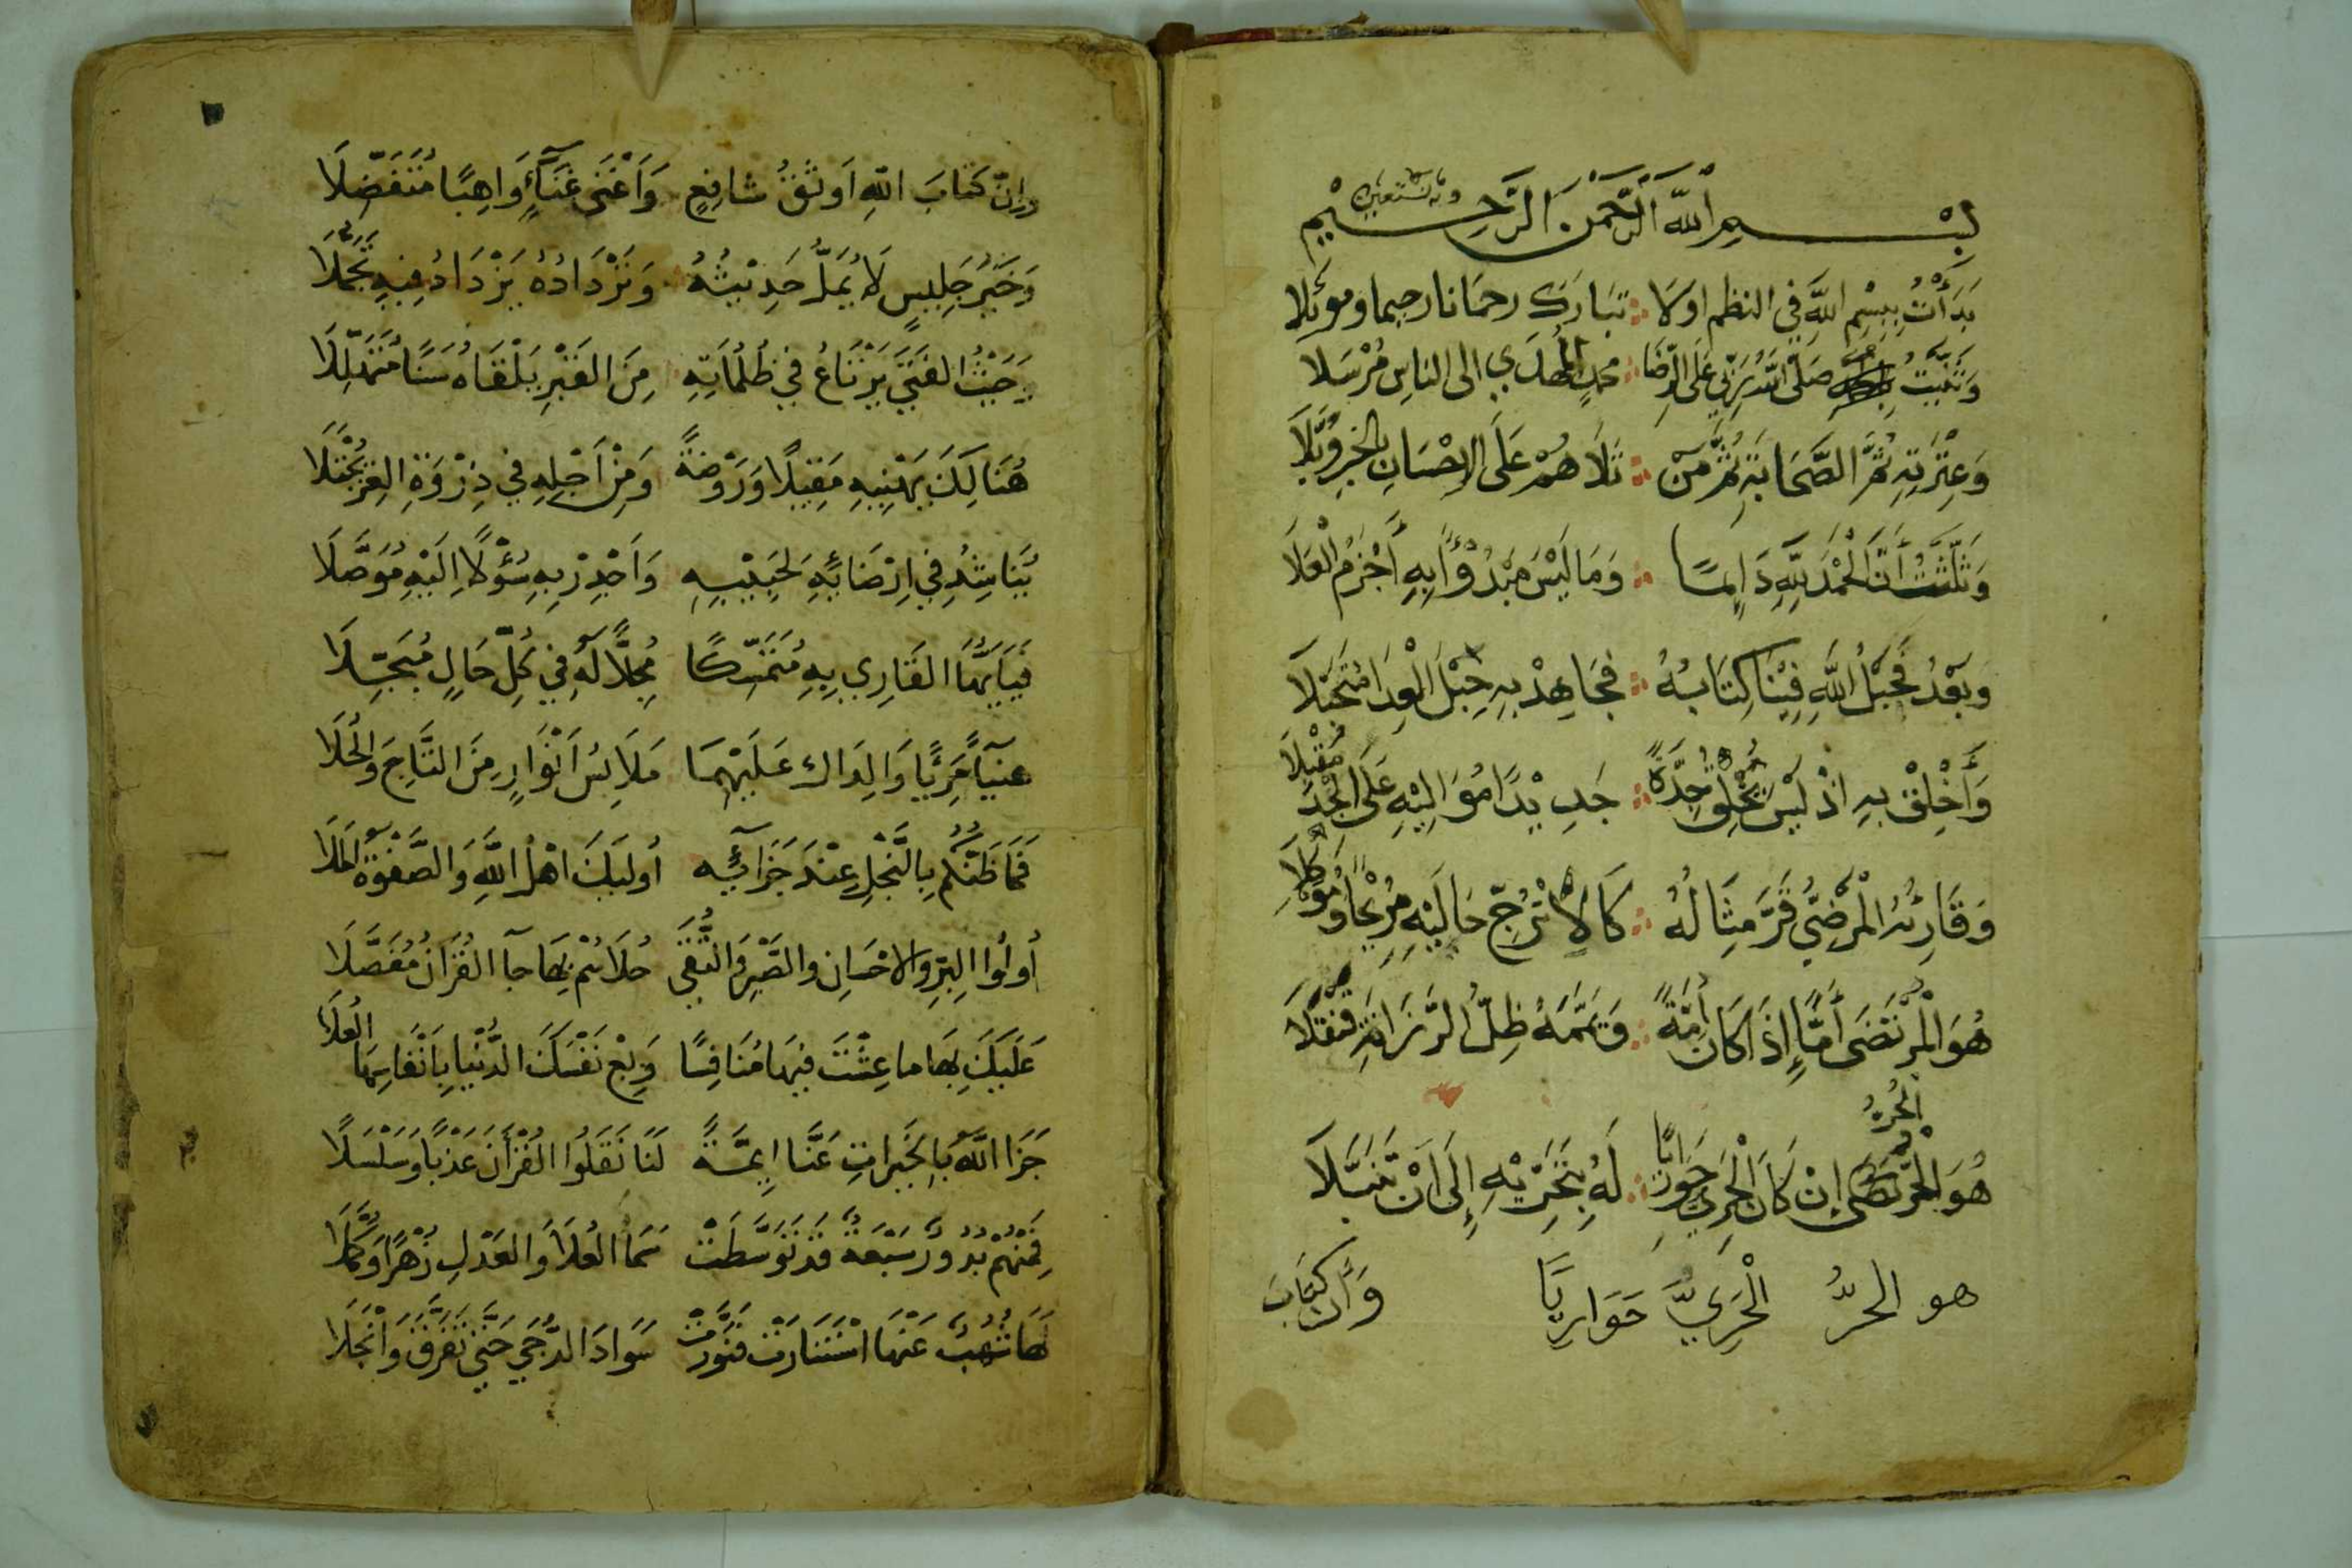 بِسْمِ اللَّهِ الرَّحْمَنِ الرَّحِيْمِ وبه نستعين
بَدَأْتُ بِبِسْمِ اللَّهِ فِي النظم اولَا تَبَارَكَ رحمَانا رحيما وموئلا
وَثَنَّيْتُ صَلَّى اللَّهُ رَبِّي عَلَى الرِّضَا محمدٍ المُهْدَي الى الناسِ مُرْسَلا
وَعِتْرَتِهِ ثُمَّ الصَّحَابَةِ ثُمَّ مَنْ تَلَاهُمْ عَلَى الاِحْسَانِ بِالخَيرِ وُبَّلَا
وَثَلَّثْتُ أَنَّ الْحَمْدَ لِلَّهِ دَائِمًا وَمَا لَيْسَ مَبْدُؤًا بِهِ أَجْزَمُ الْعَلَا
وَبَعْدُ فَحَبْلُ اللَّهِ فِيْنَا كِتَابُهُ فَجَاهِدْ بِهِ حِبْلَ الْعِدَا مُتَحَبِّلَا
وَأَخْلِقْ بِهِ اذْ لَيْسَ يُخْلِقُ جِدَّةً جَدِيْدًا مُوَالِيْهِ عَلَى الْجِدِّ مُقْبِلَا
وَقَارِئُهُ الْمَرْضِيُّ قَرَّ مِثَالُهُ كَالاُتْرُجِّ حَالَيْهِ مُرِيْحًا وَمُوْكِلَا
هُوَ الْمُرْتَضَى أَمًّا إِذَا كَانَ أُمَّةً وَيَمَّمَهُ ظِلُّ الرَّزَانَةِ قَنْقَلَا
هُوَ الْحُرُّ اِنْ كَانَ الْحَرِيَّ حَوَارِيًّا لَهُ بِتَحَرِّيْهِ إِلَى اَنْ تَنَبَّلَا
هو الحرُّ الْحَرِيَّ حَوَارِيًّا وَأَن كِتَابَ
وَاِنَّ كِتَابَ اللهِ اَوثَقُ شَافِعٍ وَاَغْنَى غَنَآءٍ وَاهِبًا مُتَفَضِّلَا
وَخَيْرُ جَلِيسٍ لَا يُمَلُّ حَدِيْثُهُ وَتَرْدَادُهُ يَزْدَادُ فِيهِ تَجَمُّلَا
وَحَيْثُ الفَتَى يَرْتَاعُ فِي ظُلُمَاتِهِ مِنَ القَبْرِ يَلْقَاهُ سَنًا مُتَهَلِّلَا
هُنَالِكَ يَهْنِيهِ مَقِيْلًا وَرَوْضَةً وَمِنْ اَجْلِهِ فِي ذِرْوَةِ العِزِّ يُجْتَلَا
يُنَاشِدُ فِي اِرْضَائِهِ لِحَبِيْبِهِ وَاَجْدِرْ بِهِ سُؤْلًا اِلَيْهِ مُوَصَّلَا
فَيَا اَيُّهَا القَارِي بِهِ مُتَمَسِّكًا مُجِلًّا لَهُ فِي كُلِّ حَالٍ مُبَجِّلَا
هنيآً مَرِئًا وَالِدَاك عَلَيْهِمَا مَلَابِسُ اَنْوَارٍ مِنَ التَّاجِ وَالحُلَا
فَمَا ظَنُّكُمْ بِالنَّجْلِ عِنْدَ جَزَآئِهِ اُولَئِكَ اَهْلُ اللَّهِ وَالصَّفْوَةُ المَلَا
اُولُوا البِرِّ وَالاحْسَانِ وَالصَّبْرِ وَالتُّقَى حُلَاهُمْ بِهَا جَآ القُرَآنُ مُفَصَّلَا
عَلَيْكَ بِهَا مَا عِشْتَ فِيْهَا مُنَافِسًا وَبِعْ نَفْسَكَ الدُّنْيَا بِاَنْفَاسِهَا العُلَا
جَزَا اللَّهُ بِالخَيْرَاتِ عَنَّا اَئِمَّةً لَنَا نَقَلُوا القُرْأَنَ عَذْبًا وَسَلْسَلَا
فَمِنْهُمْ بُدُورٌ سَبْعَةٌ قَدْ تَوَسَّطَتْ سَمَا العُلَا وَالعَدْلِ زُهْرًا وَكُمَّلَا
لَهَا شُهُبٌ عَنْهَا اسْتَنَارَتْ فَنَوَّرَتْ سَوَادَ الدُّجَى حَتَّى تَفَرَّقَ وَانْجَلَا